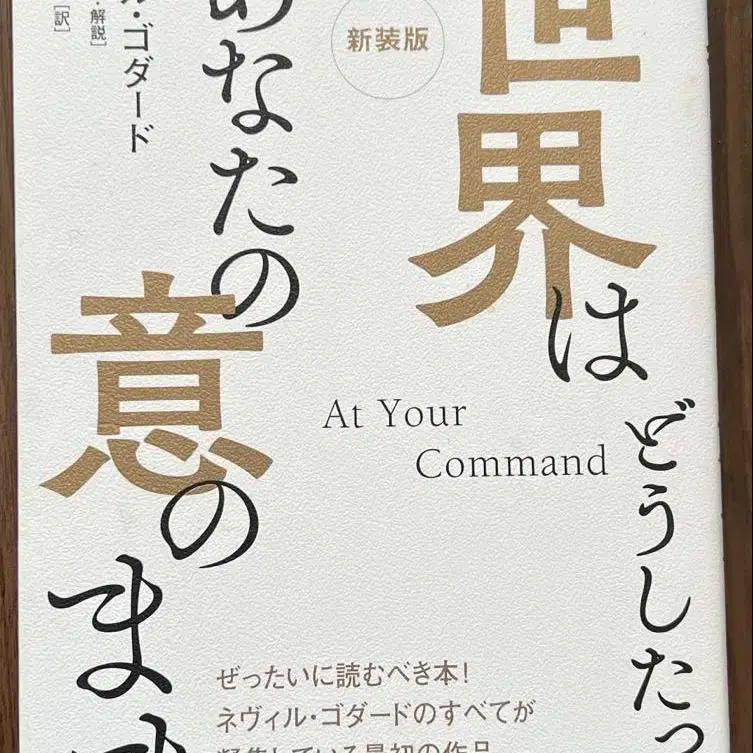 世界はどうしたっ
あなたの意のまま
新装版
ル・ゴダード
解説]
[訳]
At Your
Command
ぜったいに読むべき本!
ネヴィル・ゴダードのすべてが
凝集している最初の作品